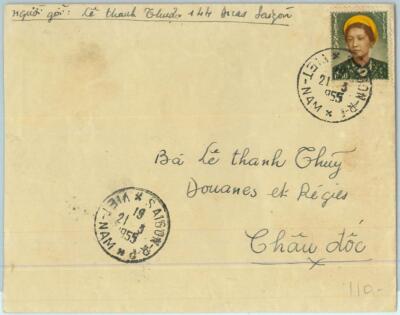 Người gởi: Lê thanh Thuỷ 144 Douas Saigón
SAIGON-R.P
21-3
1955
VIET-NAM
Bà Lê thanh Thủy
Douanes et Régies
Châu đốc
SAIGON-R.P
19
21-3
1955
VIET-NAM
110.-